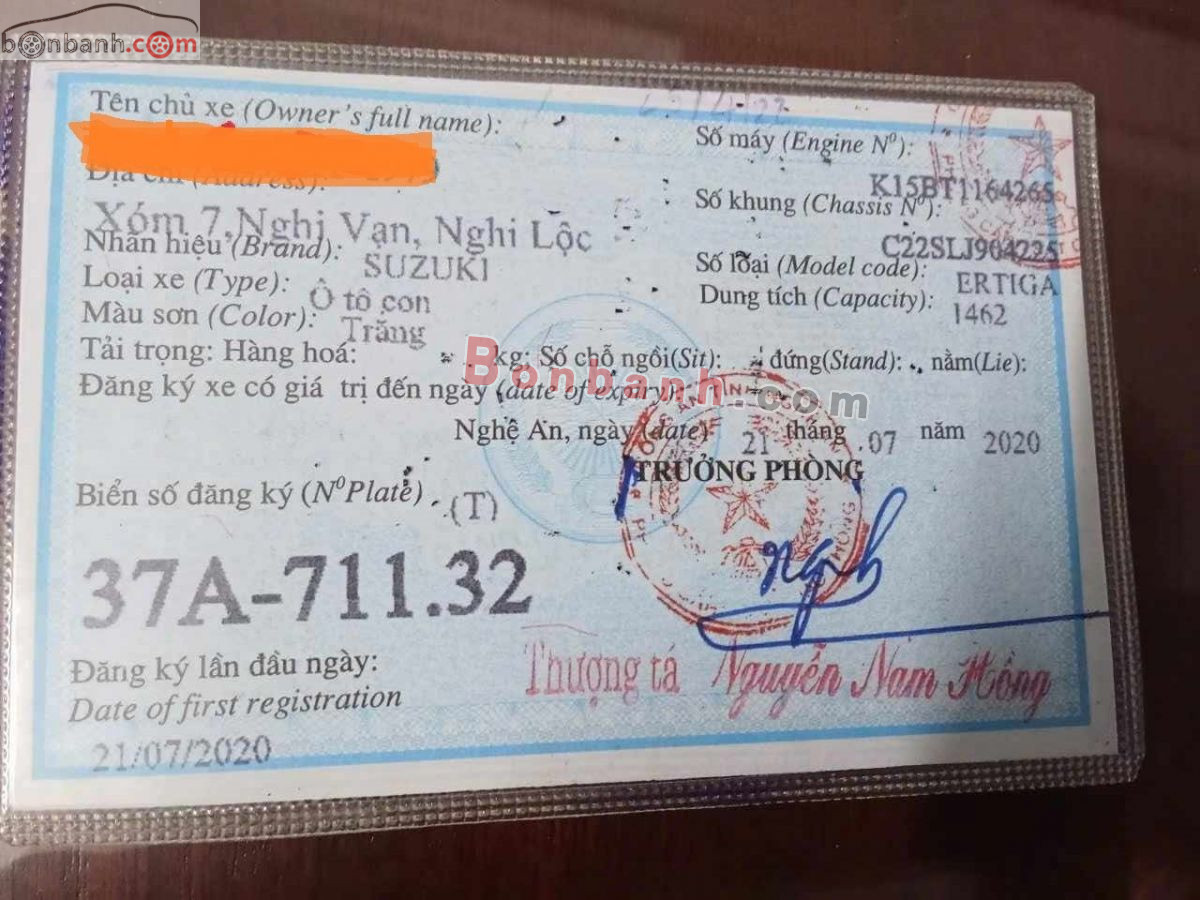 bonbanh.com
Tên chủ xe (Owner's full name):
Số máy (Engine Nº):
K15BT1164265
Địa chỉ (Address):
Số khung (Chassis Nº):
Xóm 7,Nghị Vạn, Nghi Lộc
C22SLJ904225
Nhãn hiệu (Brand):
SUZUKI
Số loại (Model code):
ERTIGA
Loại xe (Type):
Ô tô con
Dung tích (Capacity):
1462
Màu sơn (Color):
Trăng
Tải trọng: Hàng hoá: kg: Số chỗ ngồi(Sit): đứng(Stand): nằm(Lie):
Bonbanh.com
Đăng ký xe có giá trị đến ngày (date of expiry):
Nghệ An, ngày (date) 21 tháng .07 năm 2020
TRƯỞNG PHÒNG
Biển số đăng ký (NºPlate) (T)
37A-711.32
Đăng ký lần đầu ngày:
Thượng tá Nguyễn Nam Hồng
Date of first registration
21/07/2020